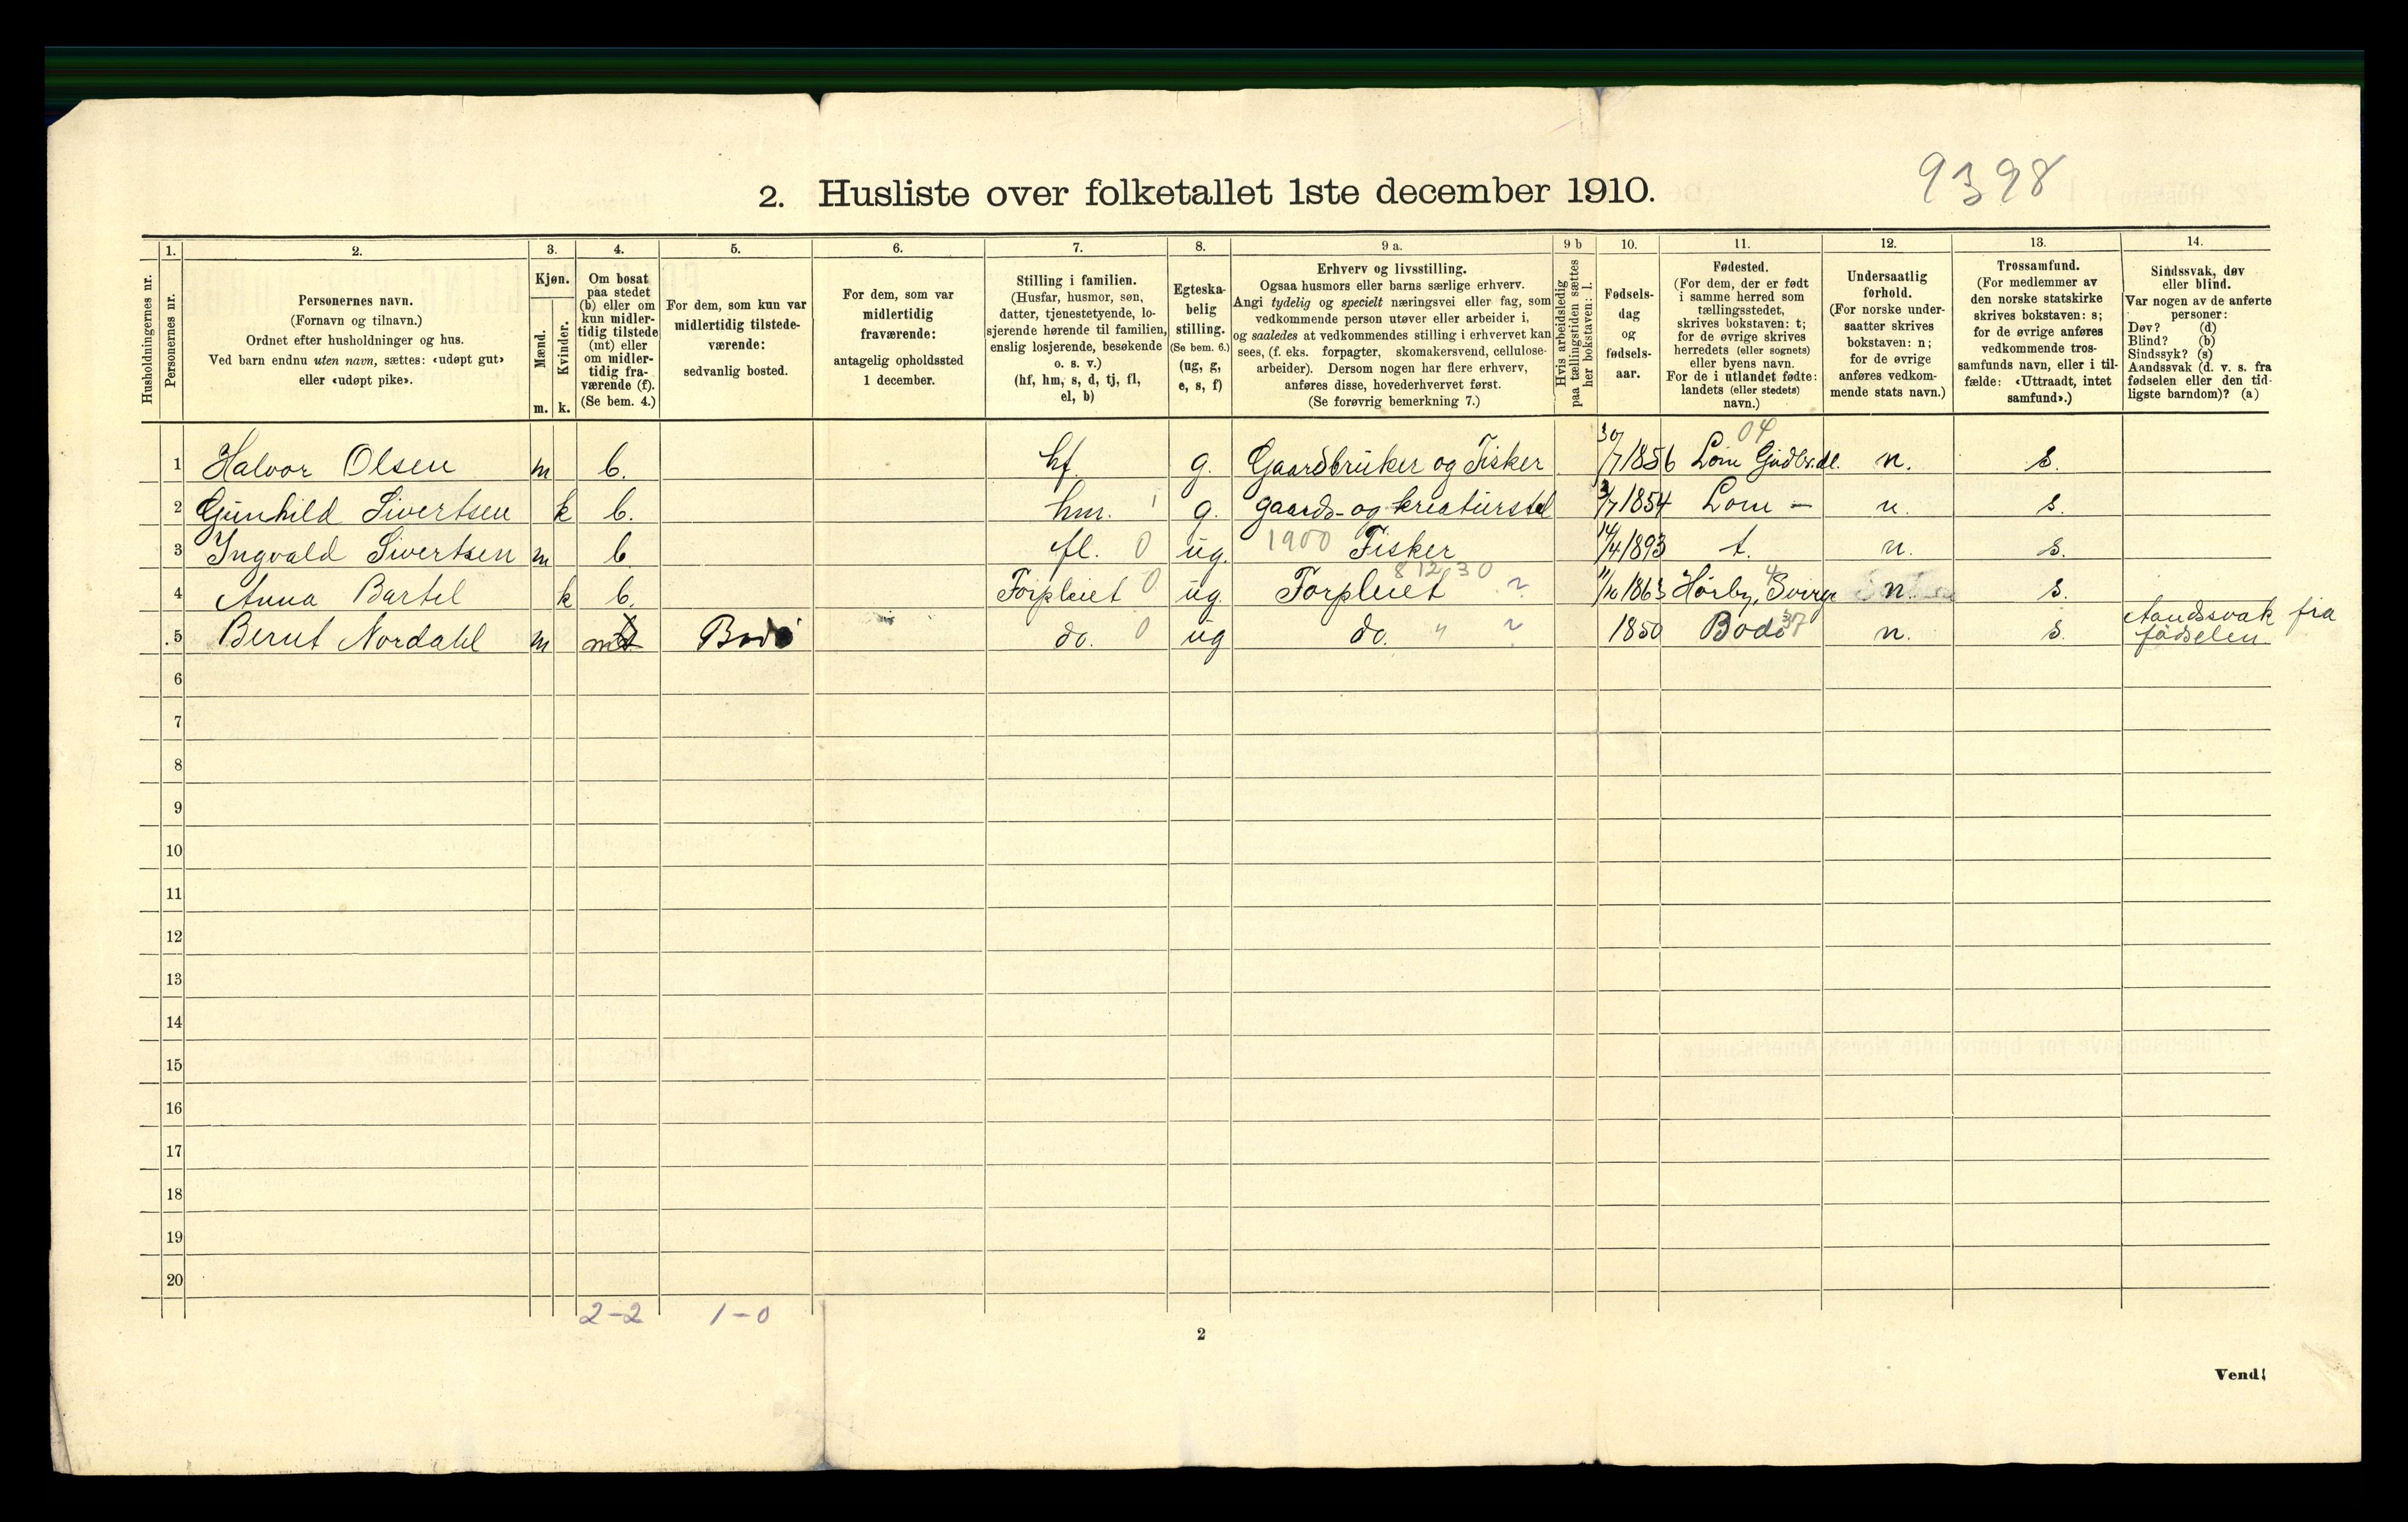 2. Husliste over folketallet 1ste december 1910.
9398
Husholdningernes nr.
1.
Personernes nr.
2.
Personernes navn.
(Fornavn og tilnavn.)
Ordnet efter husholdninger og hus.
Ved barn endnu uten navn, sættes: «udøpt gut»
eller «udøpt pike».
3.
Kjøn.
Mænd.
Kvinder.
m. k.
4.
Om bosat
paa stedet
(b) eller om
kun midler-
tidig tilstede
(mt) eller
om midler-
tidig fra-
værende (f).
(Se bem. 4.)
5.
For dem, som kun var
midlertidig tilstede-
værende:
sedvanlig bosted.
6.
For dem, som var
midlertidig
fraværende:
antagelig opholdssted
1 december.
7.
Stilling i familien.
(Husfar, husmor, søn,
datter, tjenestetyende, lo-
sjerende hørende til familien,
enslig losjerende, besøkende
o. s. v.)
(hf, hm, s, d, tj, fl,
el, b)
8.
Egteska-
belig
stilling.
(Se bem. 6.)
(ug, g,
e, s, f)
9 a.
Erhverv og livsstilling.
Ogsaa husmors eller barns særlige erhverv.
Angi tydelig og specielt næringsvei eller fag, som
vedkommende person utøver eller arbeider i,
og saaledes at vedkommendes stilling i erhvervet kan
sees, (f. eks. forpagter, skomakersvend, cellulose-
arbeider). Dersom nogen har flere erhverv,
anføres disse, hovederhvervet først.
(Se forøvrig bemerkning 7.)
9 b
Hvis arbeidsledig
paa tællingstiden sættes
her bokstaven: l.
10.
Fødsels-
dag
og
fødsels-
aar.
11.
Fødested.
(For dem, der er født
i samme herred som
tællingsstedet,
skrives bokstaven: t;
for de øvrige skrives
herredets (eller sognets)
eller byens navn.
For de i utlandet fødte:
landets (eller stedets)
navn.)
12.
Undersaatlig
forhold.
(For norske under-
saatter skrives
bokstaven: n;
for de øvrige
anføres vedkom-
mende stats navn.)
13.
Trossamfund.
(For medlemmer av
den norske statskirke
skrives bokstaven: s;
for de øvrige anføres
vedkommende tros-
samfunds navn, eller i til-
fælde: «Uttraadt, intet
samfund».)
14.
Sindssvak, døv
eller blind.
Var nogen av de anførte
personer:
Døv? (d)
Blind? (b)
Sindssyk? (s)
Aandssvak (d. v. s. fra
fødselen eller den tid-
ligste barndom)? (a)
04
1 Halvor Olsen m b. hf. g. Gaardbruker og Fisker 30/7 1856 Lom Gudbr.dl. n. s.
2 Gunhild Sivertsen k b. hm. 1 g. gaards- og kreaturstel 3/7 1854 Lom - n. s.
3 Ingvald Sivertsen m b fl. 0 ug. 1900 Fisker 14/4 1893 t. n. s.
8 12 30
4 Anna Bartel k b. Forpleiet 0 ug. Forpleiet 11/10 1863 Hørby, Sverge n. s.
5 Bernt Nordahl m mt b Bodø do. 0 ug do. " 1850 Bodø 37 n. s. Aandssvak fra
fødselen
6
7
8
9
10
11
12
13
14
15
16
17
18
19
20
2-2 1-0
2
Vend!